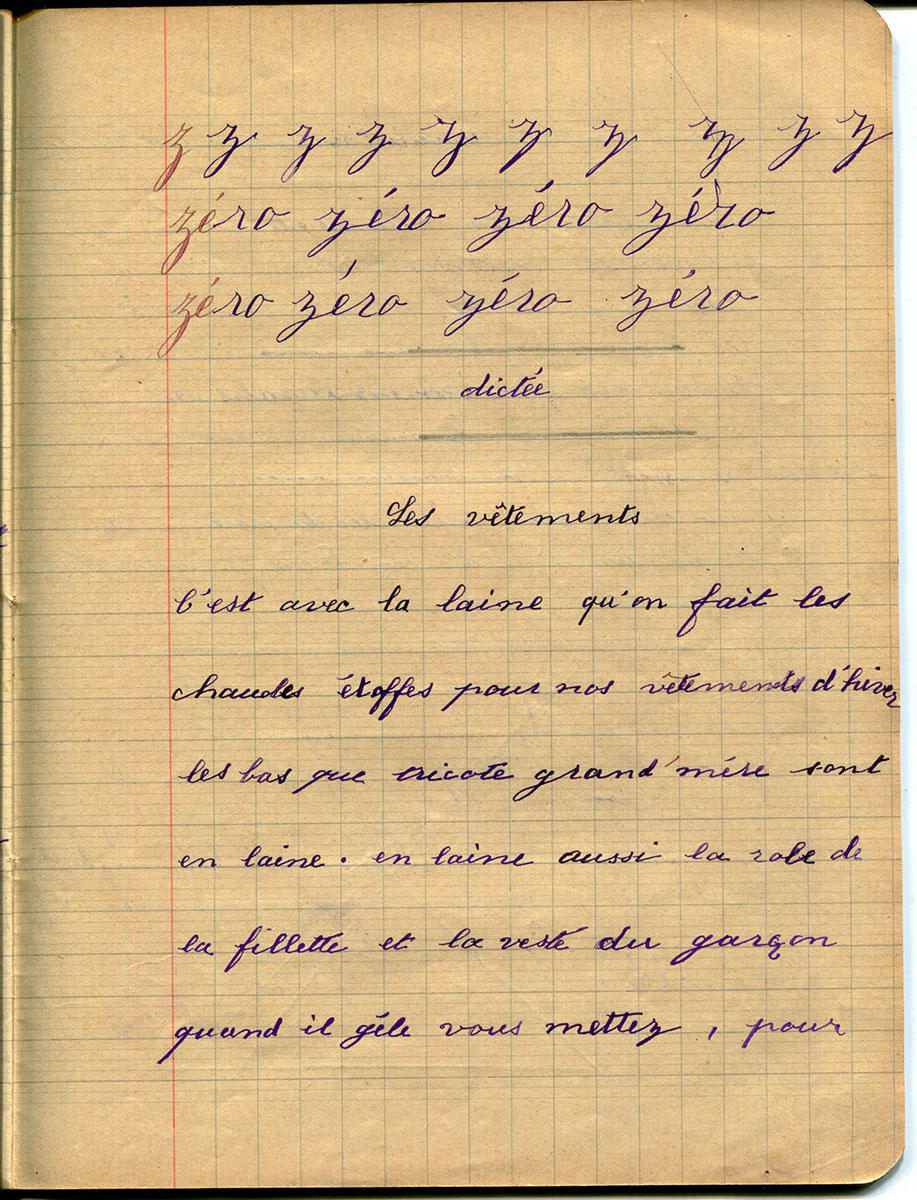 z z z z z z z z z z
zéro zéro zéro zéro
zéro zéro zéro zéro
dictée
Les vêtements
C'est avec la laine qu'on fait les
chaudes étoffes pour nos vêtements d'hiver
les bas que tricote grand'mère sont
en laine. en laine aussi la robe de
la fillette et la veste du garçon
quand il gèle vous mettez, pour